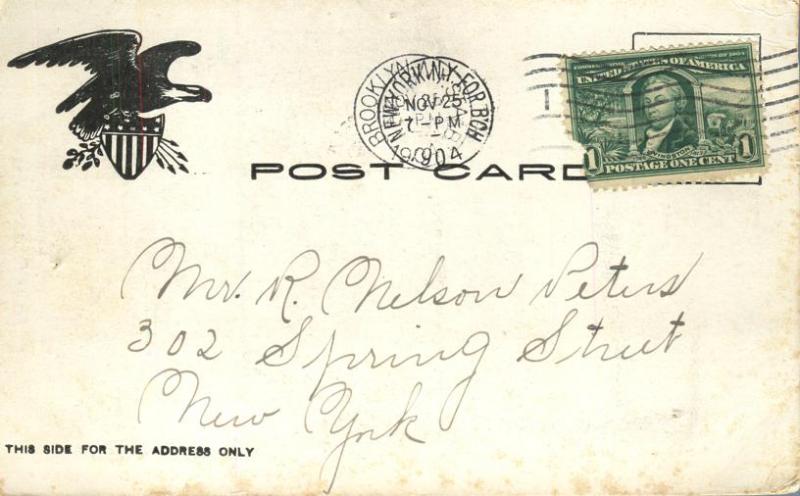 BROOKLYN
NEW YORK N.Y. FOR BCH
NOV 25
7-PM
1904
UNITED STATES OF AMERICA
1
POSTAGE ONE CENT
POST CARD
Mr. R. Nelson Peters
302 Spring Street
New York
THIS SIDE FOR THE ADDRESS ONLY